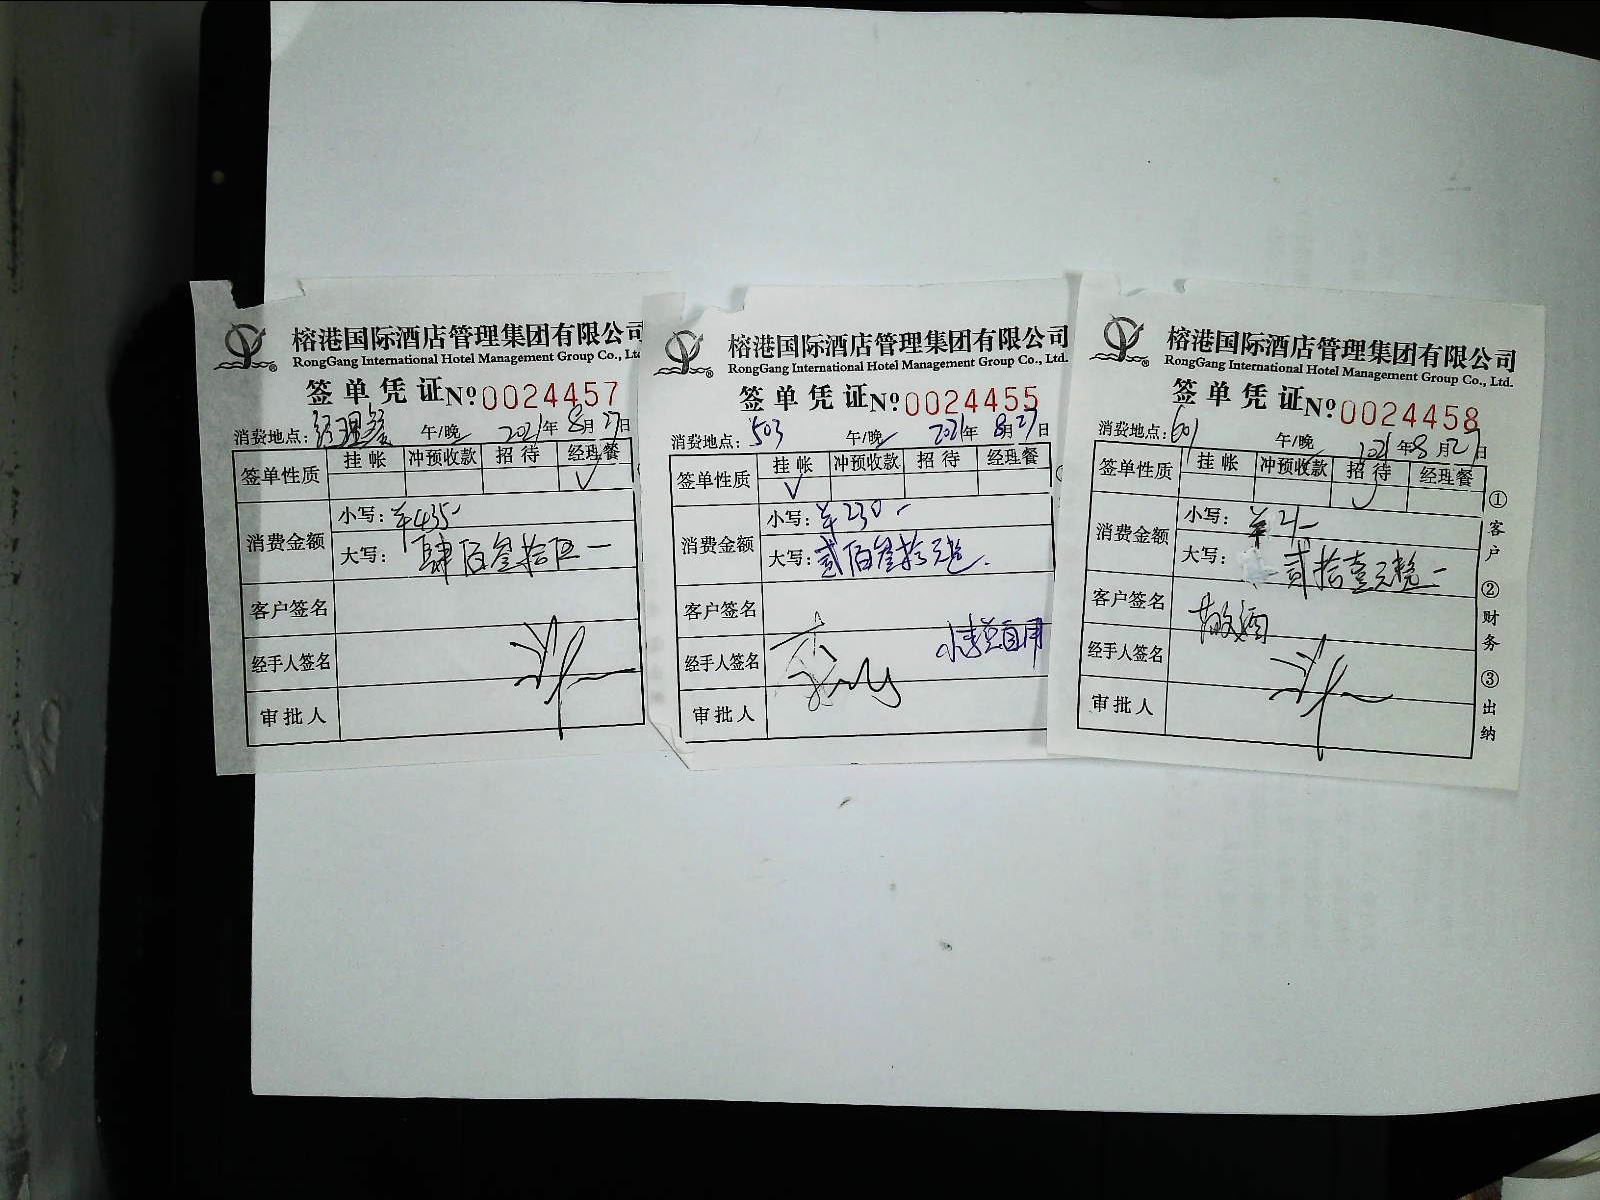 榕港国际酒店管理集团有限公司
RongGang International Hotel Management Group Co., Lt
签单凭证 No 0024457
消费地点: 经理餐 午/晚 2021年 8月 27日
签单性质 挂帐 冲预收款 招待 经理餐
✓
消费金额
小写: ¥435-
大写: 肆佰叁拾伍一
客户签名
经手人签名
审批人
榕港国际酒店管理集团有限公司
RongGang International Hotel Management Group Co., Ltd.
签单凭证 No 0024455
消费地点: 503 午/晚 2021年 8月27日
签单性质 挂帐 冲预收款 招待 经理餐
✓
消费金额
小写: ¥230-
大写: 贰佰叁拾元整.
客户签名
经手人签名
审批人
榕港国际酒店管理集团有限公司
RongGang International Hotel Management Group Co., Ltd.
签单凭证 No 0024458
消费地点: 601 午/晚 2021年8月27日
签单性质 挂帐 冲预收款 招待 经理餐
✓
消费金额
小写: ¥21-
大写: 贰拾壹元整一
客户签名 敬酒
经手人签名
审批人
①客户 ②财务 ③出纳